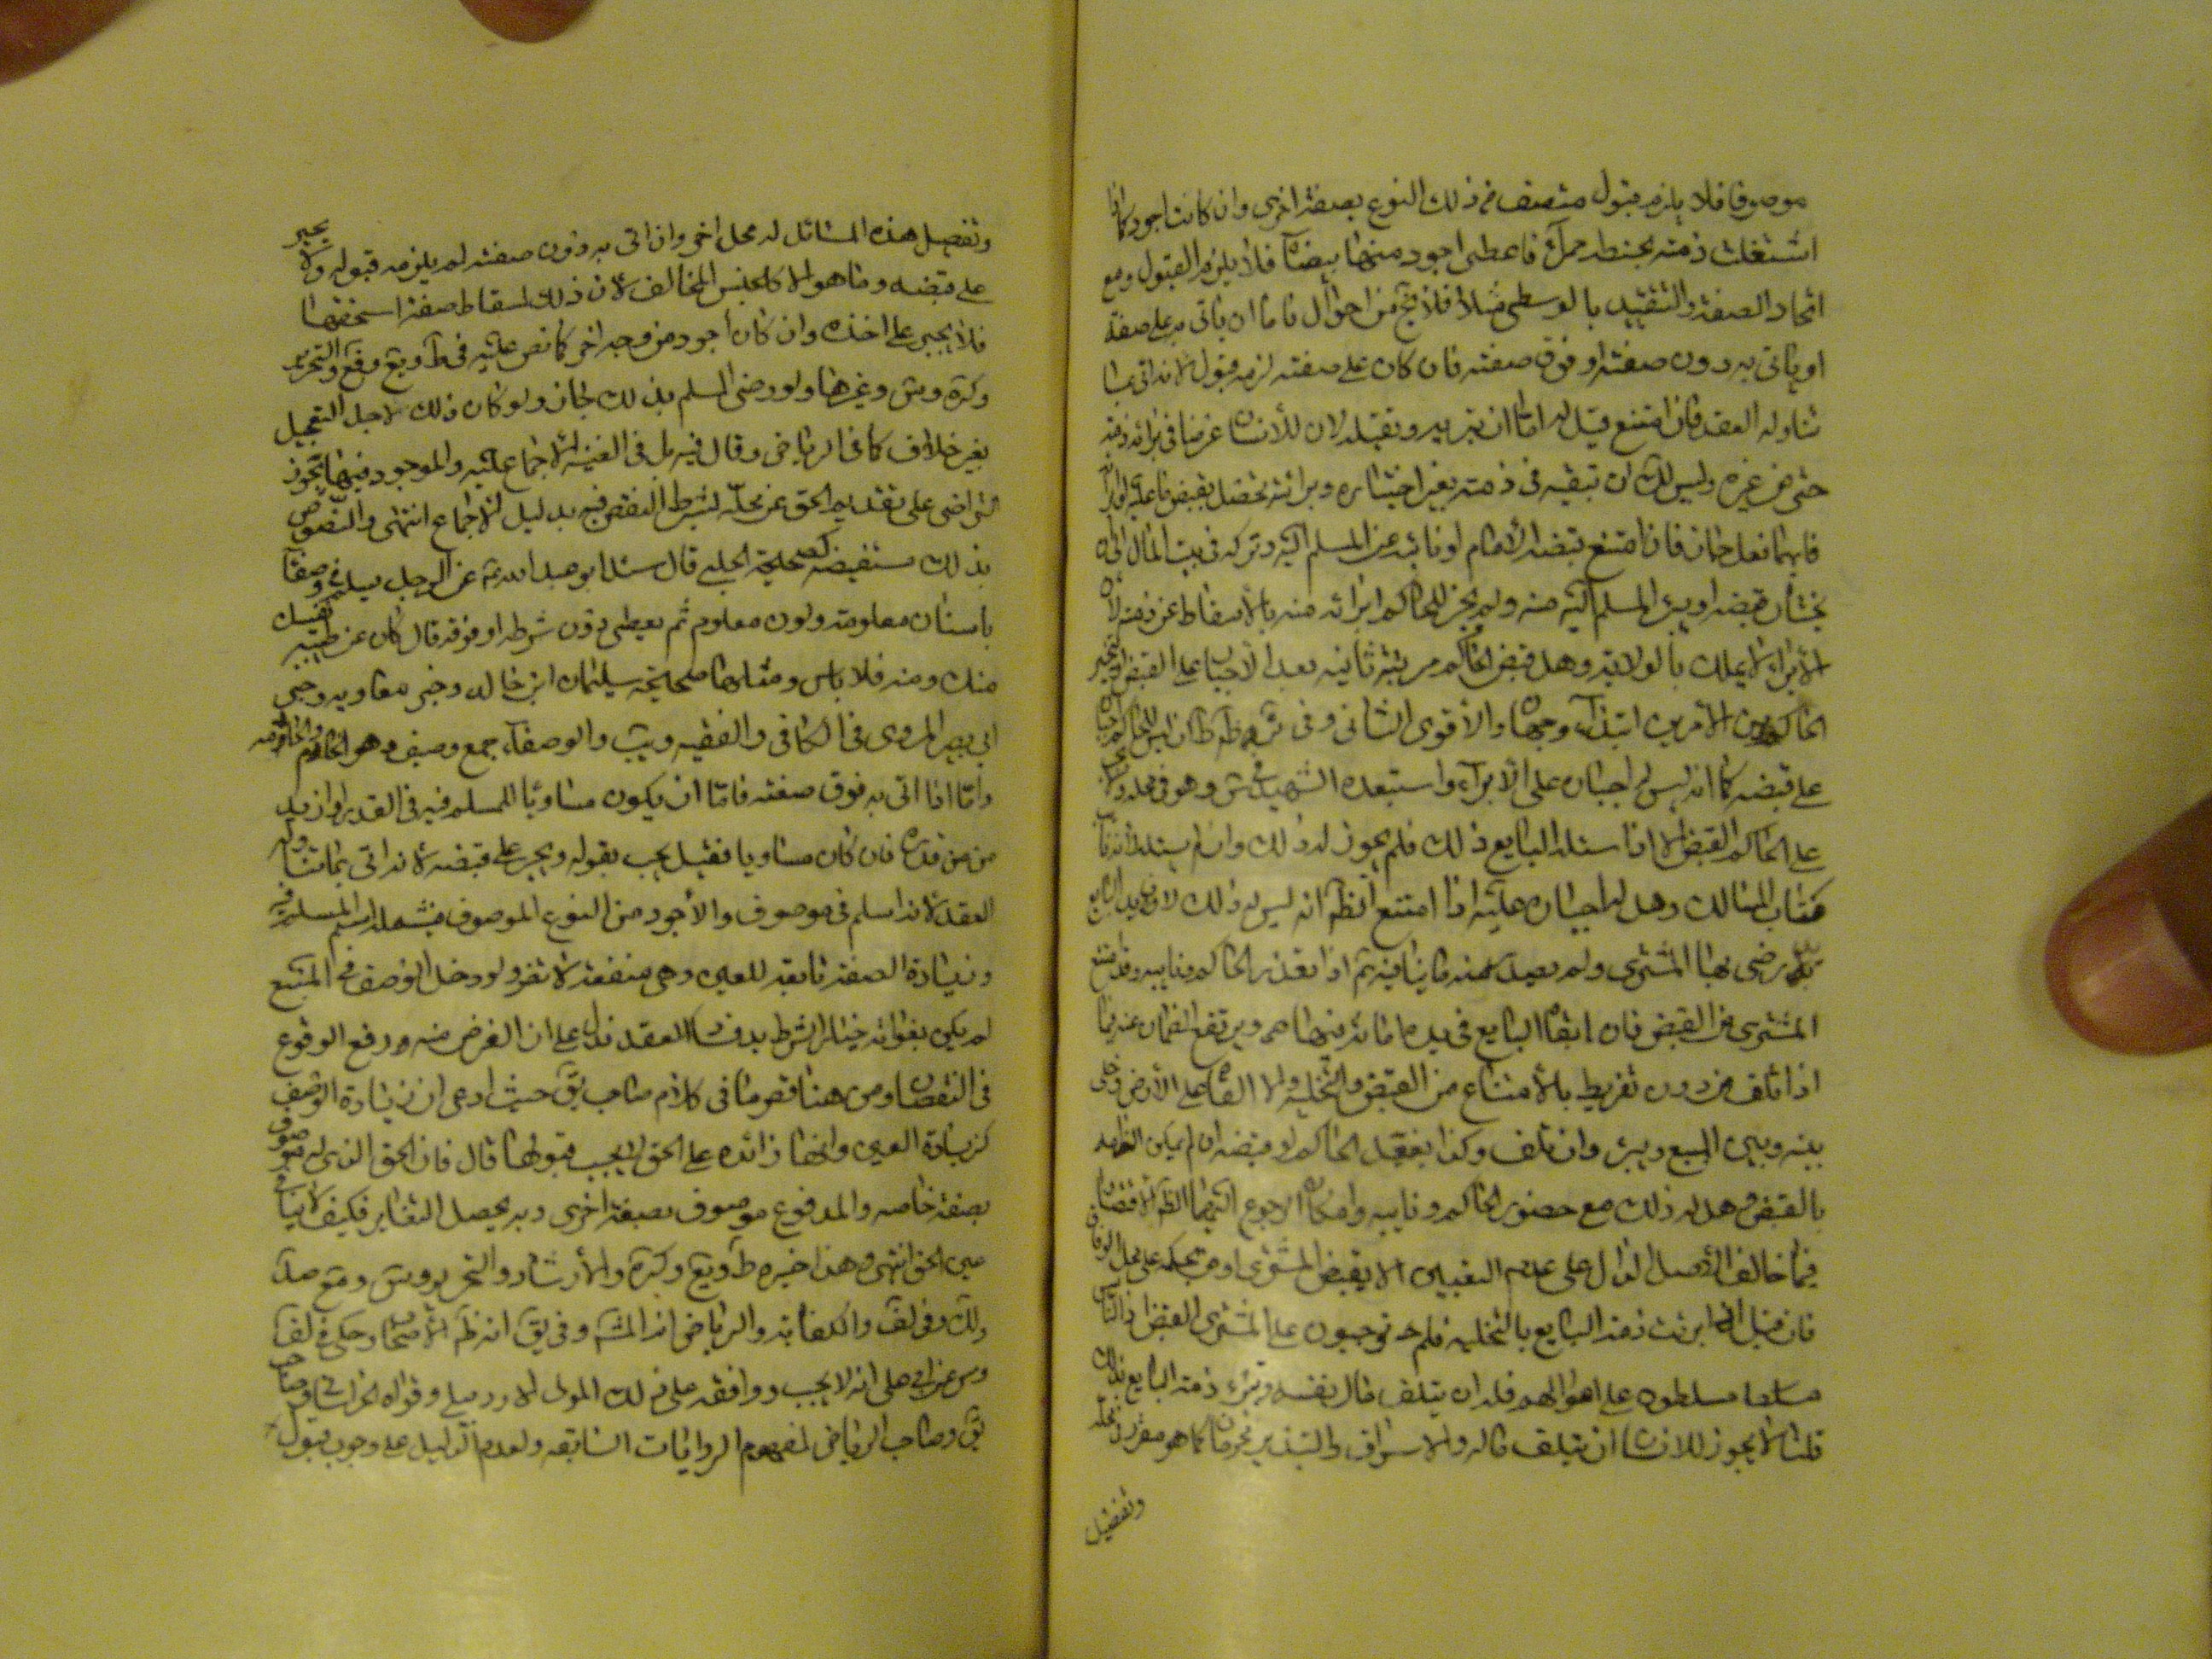 موصوفا فلا يلزم قبول متصف من ذلك النوع بصفة اخرى وان كانت اجود كما اذا
اشتغلت ذمته بحنطة حمراء فاعطى اجود منها بيضاء فلا يلزم القبول ومع
اتحاد الصفة والتقييد بالوسطى مثلا فلا يخ من احوال فاما ان ياتى به على صفته
او ياتى به دون صفته او فوق صفته فان كان على صفته لزمه قبوله لانه اتى بما
تناوله العقد فان امتنع قيل له اما ان تبريه وتقبله لان للانسان غرضا فى برائة ذمته
حتى من غيره وليس لك ان تبقيه فى ذمته بغير اختياره وبرائته تحصل بقبض ما عليه او ابرائه
فايهما فعل جاز فان امتنع قبضه الامام او نائبه عن المسلم اليه وتركه فى بيت المال الى ان
يختار قبضه او يبرء المسلم اليه منه ولم يجز للحاكم ابرائه منه بالاسقاط عن ذمته لان
الابراء لا يملك بالولاية وهل قبض الحاكم مرتبة ثانيه بعد الاجبار على القبض او يتخير
الحاكم بين الامرين ابتداء وجهان والاقوى الثانى وفى ظ ان ليس للحاكم اجباره
على قبضه كما انه ليس له اجباره على الابراء واستبعده الشهيد فى وهو فى محله
على الحاكم القبض الا اذا سئله البايع ذلك فلم يجوز له ذلك وان لم يسئله
المالك وهل له اجباره عليه اذا امتنع الظ انه ليس له ذلك لان يد البايع
يد رضى بها المشترى ولم يصدر منه ما ينافيه ثم اذا تعذر الحاكم ونايبه وقد امتنع
المشترى من القبض فان ابقاه البايع فى يده امانة منها ويرتفع الضمان عنه فيما
اذا تلف من دون تفريط بالامتناع من القبض والتخليه والا القاه على الارض وخلى
بينه وبين المبيع ويبرء وان تلف وكذا يفعل الحاكم لو قبضه ان لم يمكن الزامه
بالقبض وهل له ذلك مع حضور الحاكم ونايبه وامكان الرجوع اليهما الظ لا اقتصارا
فيما خالف الاصل الدال على عدم التعيين الا بقبض المشترى او من بحكمه على محل الوفاق
فان قيل اذا ابرئت ذمة البايع بالتخليه فلم توجبون على المشترى القبض اذ الناس
مسلطون على اموالهم فله ان يتلف مال نفسه وتبرء ذمة البايع بذلك
قلنا لا يجوز للانسان ان يتلف ماله والاسراف والتبذير محرمان كما هو مقرر فى محله
وتفصيل
وتفصيل هذه المسائل له محل اخر وان اتى به دون صفته لم يلزمه قبوله ولا يجبر
على قبضه وما هو الا كالجنس المخالف لان ذلك اسقاط صفة استحقها
فلا يجبر على اخذه وان كان اجود من وجه اخر كما نص عليه فى ط و يع و فع والتحرير
وكره وغيرها ولو رضى المسلم بذلك لجاز ولو كان ذلك لاجل التعجيل
بغير خلاف كما فى الرياض وقال فيه بل فى الغنيه الاجماع عليه والموجود فيها يجوز
التراضى على تقديم الحق عن محله بشرط النقص فيه بدليل الاجماع انتهى والنصوص
بذلك مستفيضه كصحيحة الحلبى قال سئل ابو عبد الله ع عن الرجل يسلم فى وصفاء
باسنان معلومة ولون معلوم ثم يعطى دون شرطه او فوقه فقال اذا كان عن طيبة نفس
منك ومنه فلا باس ومثلها صحيحة سليمان ابن خالد وخبر معاويه وخبر
ابى بصير المروى فى الكافى والفقيه ويب والوصفاء جمع وصيف وهو الخادم والخادمه
واما اذا اتى به فوق صفته فاما ان يكون مساويا للمسلم فيه فى القدر او ازيد
من قدره فان كان مساويا فقيل يجب قبوله ويجبر على قبضه لانه اتى بما تناوله
العقد لانه اسلم فى موصوف والاجود من النوع الموصوف فيشمله اسم المسلم فيه
وزيادة الصفة تابعة للعين وهى منفعة لا تفرد ولو دخل الوصف فى المتبع
لم يكن بفواته خيار الشرط بل فساد العقد فدل على ان الغرض منه دفع الوقوع
فى النقصان ومن هنا قصر ما فى كلام صاحب ئق حيث ادعى ان زيادة الوصف
كزيادة العين وانها زائده على الحق لا يجب قبولها قال فان الحق الذى له موصوف
بصفة خاصه والمدفوع موصوف بصفة اخرى وبه يحصل التغاير فكيف لا ينافى
عين الحق انتهى وهذا خيره ط و يع وكره والارشاد والتحرير
ولك وفى لف والكفاية والرياض انه المشه وفى ئق انه ظ الاصحاب وحكى فى لف
عن ابى على انه لا يجب ووافقه على ذلك المولى الاردبيلى وقواه الخراسانى وصاحب
ئق وصاحب الرياض لمفهوم الروايات السابقه ولعدم الدليل على وجوب قبول